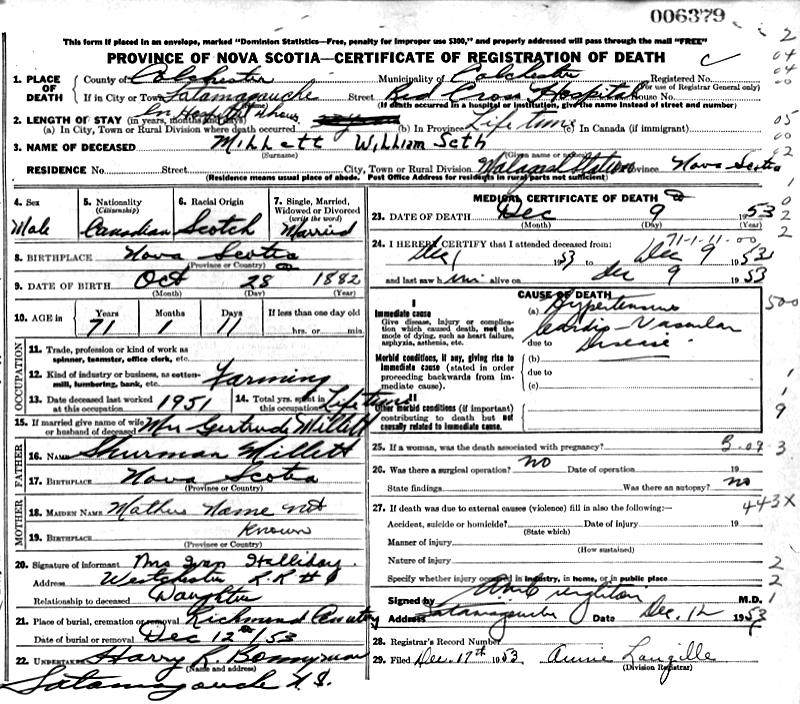 006379
This form if placed in an envelope, marked "Dominion Statistics—Free, penalty for improper use $300," and properly addressed will pass through the mail "FREE"
PROVINCE OF NOVA SCOTIA—CERTIFICATE OF REGISTRATION OF DEATH
1. PLACE OF DEATH County of Colchester Municipality of Colchester Registered No.
(For use of Registrar General only)
If in City or Town Tatamagouche Street Red Cross Hospital House No.
(If death occurred in a hospital or institution, give the name instead of street and number)
2. LENGTH OF STAY (in years, months and days)
(a) In City, Town or Rural Division where death occurred (b) In Province Life time (c) In Canada (if immigrant)
3. NAME OF DECEASED Millett William Seth
(Surname) (Given name or names)
RESIDENCE No. Street City, Town or Rural Division Malagash Station Province Nova Scotia
(Residence means usual place of abode. Post Office Address for residents in rural parts not sufficient)
4. Sex Male
5. Nationality (Citizenship) Canadian
6. Racial Origin Scotch
7. Single, Married, Widowed or Divorced (write the word) Married
8. BIRTHPLACE Nova Scotia
(Province or Country)
9. DATE OF BIRTH Oct 28 1882
(Month) (Day) (Year)
10. AGE in Years 71 Months 1 Days 11 If less than one day old hrs. or min.
OCCUPATION
11. Trade, profession or kind of work as spinner, teamster, office clerk, etc.
12. Kind of industry or business, as cotton-mill, lumbering, bank, etc. Farming
13. Date deceased last worked at this occupation 1951 14. Total yrs. spent in this occupation Life time
15. If married give name of wife or husband of deceased Mrs Gertrude Millett
FATHER
16. Name Shurman Millett
17. Birthplace Nova Scotia
(Province or Country)
MOTHER
18. Maiden Name Mothers Name not
19. Birthplace Known
(Province or Country)
20. Signature of informant Mrs Ivan Halliday
Address Westchester R.R # 1
Relationship to deceased Daughter
21. Place of burial, cremation or removal Richmond Cemetery
Date of burial or removal Dec 12 /53
22. Undertaker Harry R. Bonnyman
(Name and address)
Tatamagouche N.S.
MEDICAL CERTIFICATE OF DEATH
23. DATE OF DEATH Dec 9 1953
(Month) (Day) (Year)
71-1-11-00
24. I HEREBY CERTIFY that I attended deceased from:
Dec 1 1953 to Dec 9 1953
and last saw him alive on Dec 9 1953
CAUSE OF DEATH
I
Immediate cause
Give disease, injury or complication which caused death, not the mode of dying, such as heart failure, asphyxia, asthenia, etc.
(a) Hypertensive Cardio-Vascular Disease
due to
Morbid conditions, if any, giving rise to immediate cause (stated in order proceeding backwards from immediate cause).
(b)
due to
(c)
II
Other morbid conditions (if important) contributing to death but not causally related to immediate cause.
25. If a woman, was the death associated with pregnancy?
26. Was there a surgical operation? no Date of operation 19
State findings Was there an autopsy? no
27. If death was due to external causes (violence) fill in also the following:— 443X
Accident, suicide or homicide? Date of injury 19
(State which)
Manner of injury
(How sustained)
Nature of injury
Specify whether injury occurred in industry, in home, or in public place
Signed by Creighton M.D.
Address Tatamagouche Date Dec. 12 1953
28. Registrar's Record Number
29. Filed Dec. 17th 1953 Annie Langille
(Division Registrar)